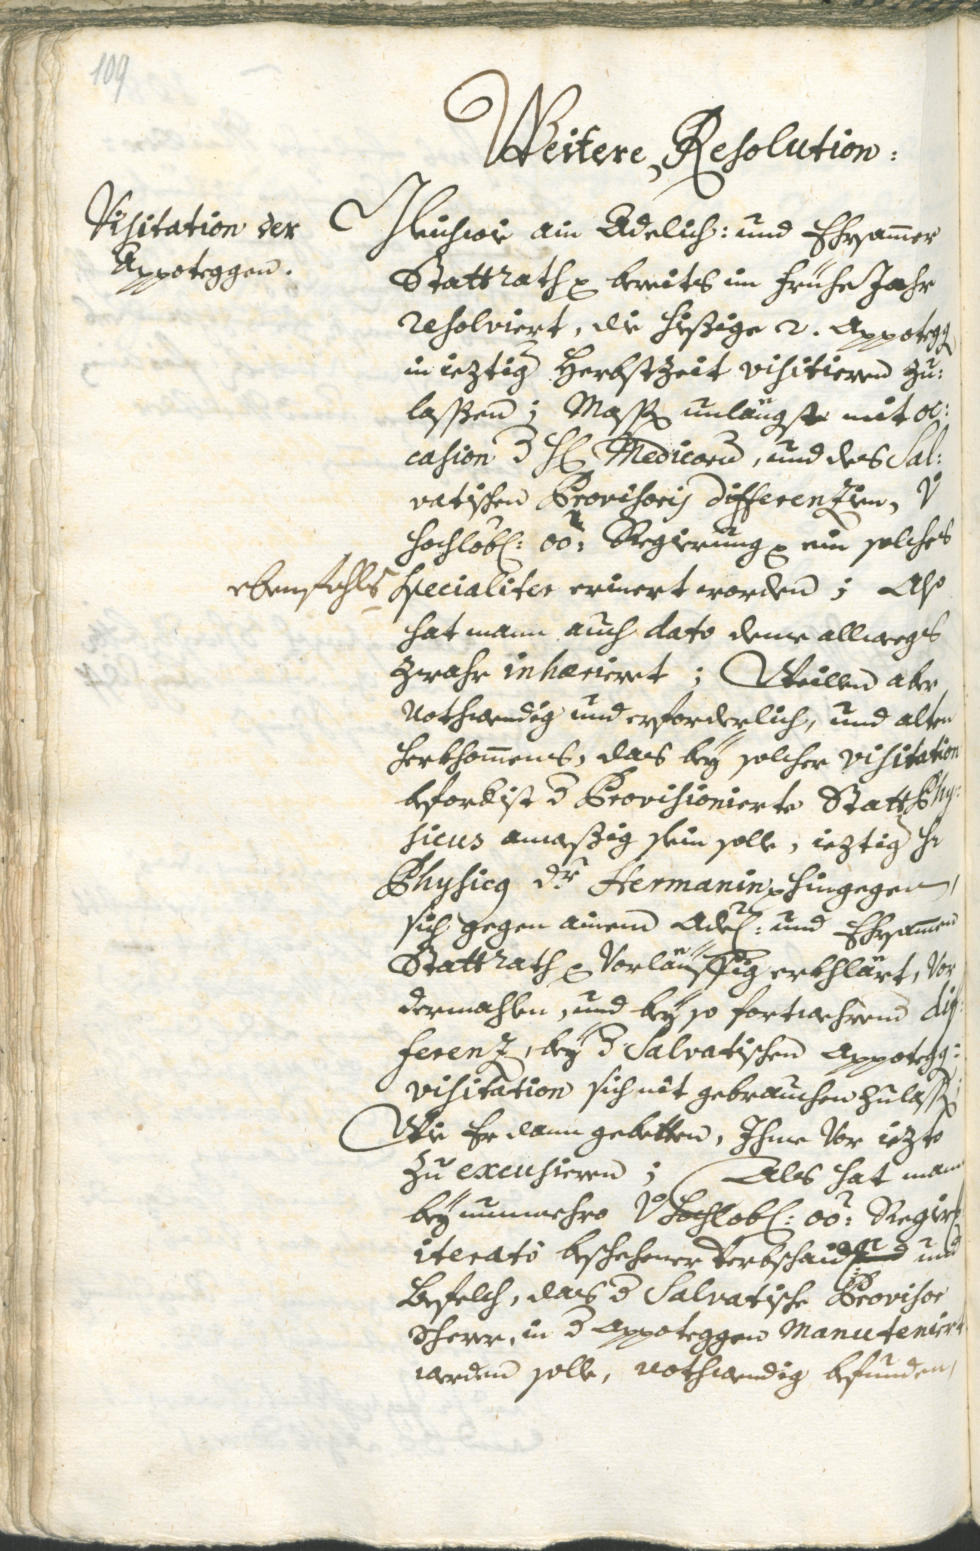 109
Weitere Resolution:
Visitation der
Appoteggen.
Gleichwie ain Adelich: und Ehrsammer
Stattrath bereits im früche Jahr
resolviert, die hießige 2. Appotegg
in ieztig Herbstzeit visitieren zu:
lassen; Mass unlängst mit oc:
casion d H Medicorum, und des Sal:
vatischen Provisoris differentien, v
hochlobl: oö: Regierung ein solches
ebenfahls
specialiter erinert worden; Also
hat mann auch dato deme allwegs
zwahr inhærieret; Weillen aber
nothwendig und erforderlich, und alten
herkhommens, das bey solcher visitation
beforderist d Provisionierte Statt Phy:
sicus anwessig sein solle, ieztig H
Physicq dr Hermanin hingegen,
sich gegen ainem Adel: und Ehrsammen
Stattrath Vorläuffig erkhlärt, Vor
dermahlen, und bey so fortwehrend dif
ferenz, bey d Salvatischen Appotegg:
visitation sich nit gebrauchen zulassen
Wie Er dann gebetten, Ihme Vor iezto
zu excusieren; Als hat mann
bey nunmehro v Hochlobl: oö: Regier
iterato beschehener Verbschaidn und
Befelch, das d Salvatische Provisor
Scherer, in d Appoteggen Manuteniert
werden solle, nothwendig befunden,